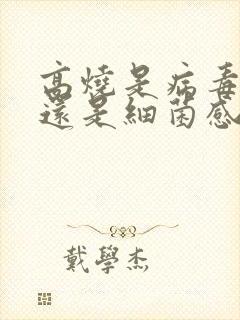 高燒是病毒
還是細菌感
戴學杰